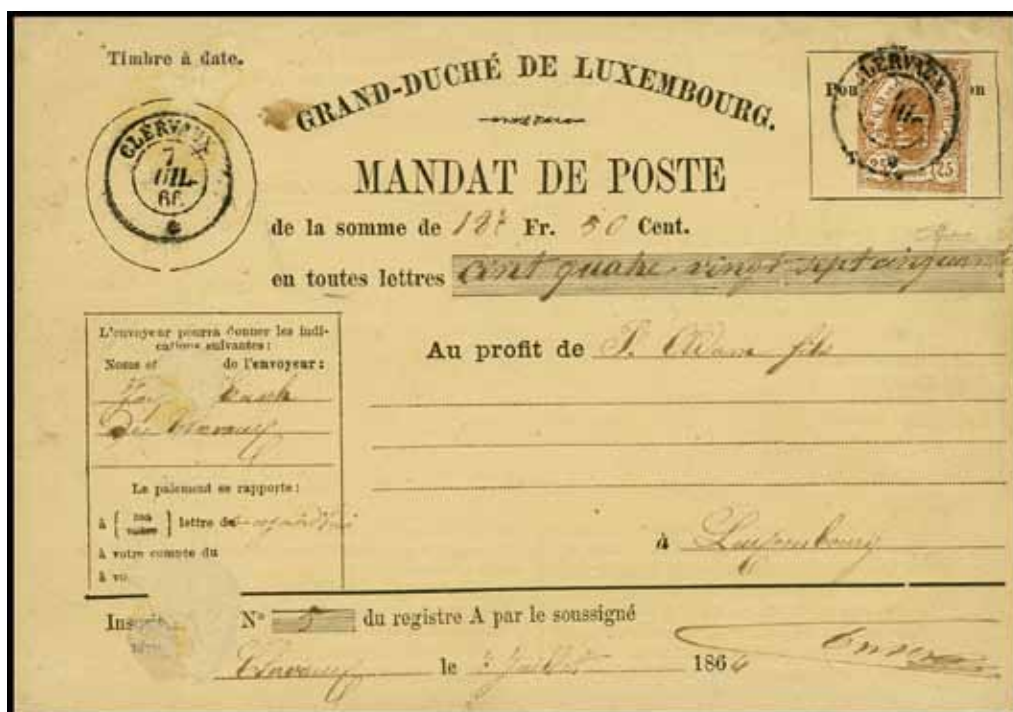 Timbre à date.
GRAND-DUCHÉ DE LUXEMBOURG.
CLERVAUX
7
JUIL
66
CLERVAUX
25
MANDAT DE POSTE
de la somme de 187 Fr. 50 Cent.
en toutes lettres cent quatre vingt sept cinquante
L'envoyeur pourra donner les indi-
cations suivantes:
Noms et de l'envoyeur:
de Clervaux
Au profit de P. Adam fils
Le paiement se rapporte:
à { ma votre } lettre de
à votre compte du
à vo
à Luxembourg
Inscrit N° 5 du registre A par le soussigné
Clervaux le 7 Juillet 1866